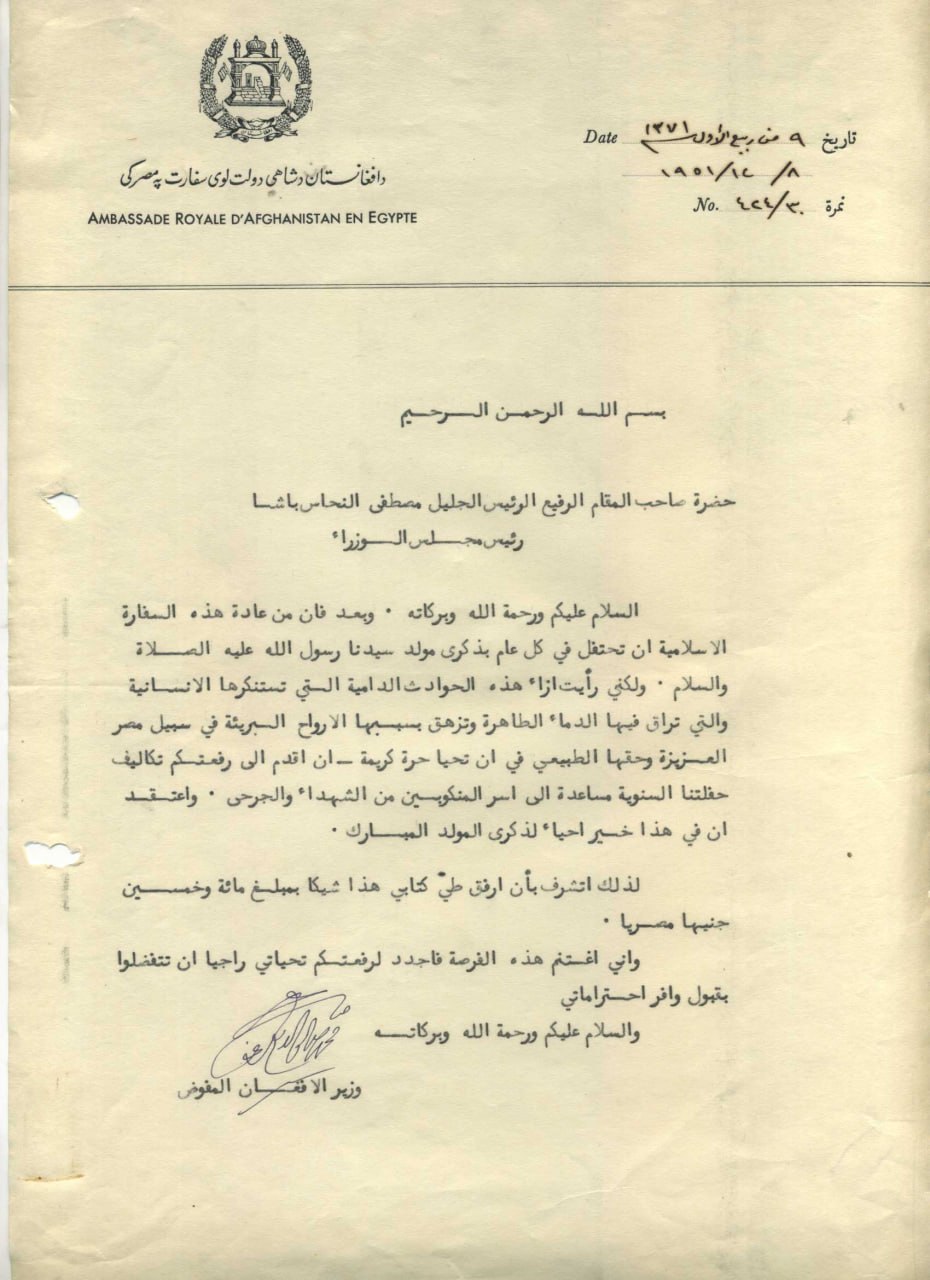 دافغانستان دشاهی دولت لوی سفارت په مصرکی
AMBASSADE ROYALE D'AFGHANISTAN EN EGYPTE
تاريخ ٩ من ربيع الأول ١٣٧١ Date
٨/ ١٢/ ١٩٥١
نمرة ٤٢٤/٣٠ No.
بسم الله الرحمن الرحيم
حضرة صاحب المقام الرفيع الرئيس الجليل مصطفى النحاس باشا
رئيس مجلس الوزراء
السلام عليكم ورحمة الله وبركاته ٠ وبعد فان من عادة هذه السفارة
الاسلامية ان تحتفل في كل عام بذكرى مولد سيدنا رسول الله عليه الصلاة
والسلام ٠ ولكني رأيت ازاء هذه الحوادث الدامية التي تستنكرها الانسانية
والتي تراق فيها الدماء الطاهرة وتزهق بسببها الارواح البريئة في سبيل مصر
العزيزة وحقها الطبيعي في ان تحيا حرة كريمة – ان اقدم الى رفعتكم تكاليف
حفلتنا السنوية مساعدة الى اسر المنكوبين من الشهداء والجرحى ٠ واعتقد
ان في هذا خير احياء لذكرى المولد المبارك ٠
لذلك اتشرف بأن ارفق طيّ كتابي هذا شيكا بمبلغ مائة وخمسين
جنيها مصريا ٠
واني اغتنم هذه الفرصة فاجدد لرفعتكم تحياتي راجيا ان تتفضلوا
بقبول وافر احتراماتي
والسلام عليكم ورحمة الله وبركاته
وزير الافغان المفوض